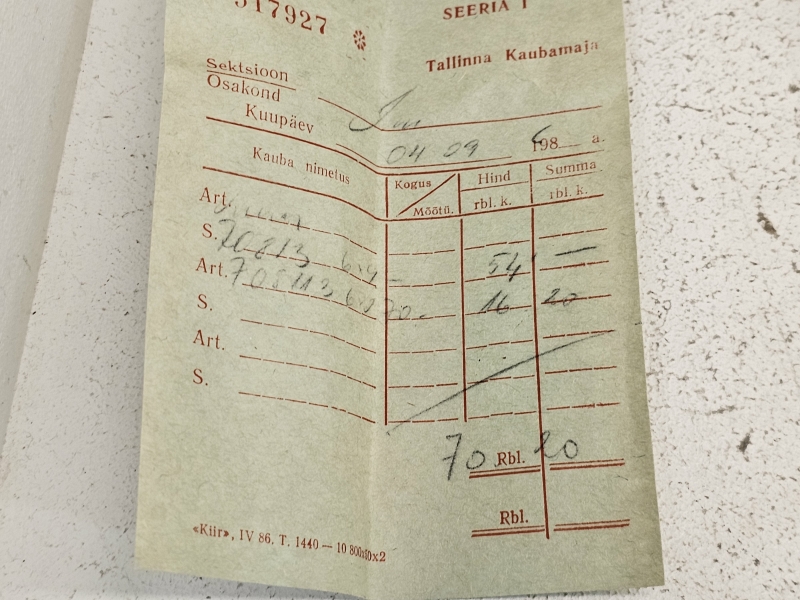 517927 SEERIA I
Tallinna Kaubamaja
Sektsioon
Osakond
Kuupäev 04 09 1986 a.
Kauba nimetus Kogus Hind Summa
Mõõtü. rbl. k. rbl. k.
Art.
S. 70813 54 —
Art. 16 20
S.
Art.
S.
70 Rbl. 20
Rbl.
«Kiir», IV 86. T. 1440 — 10 800x50x2